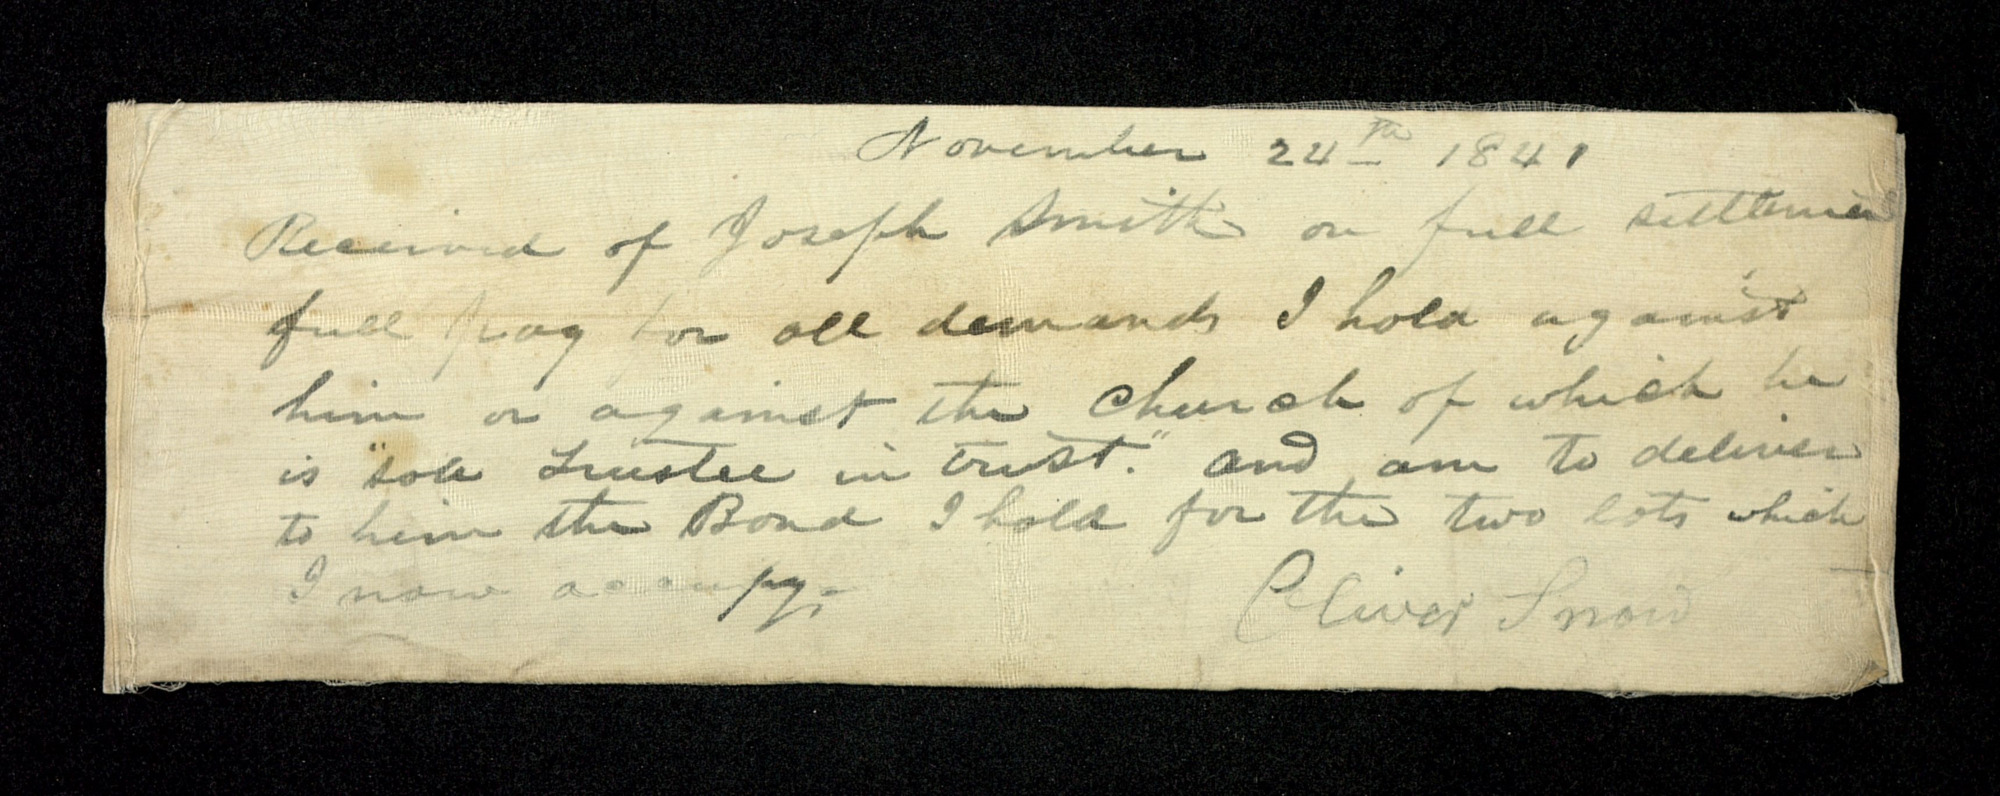 November 24th 1841
Received of Joseph Smith on full settlemen
full pay for all demands I hold against
him or against the church of which he
is "sole Trustee in trust." and am to deliver
to him the Bond I hold for the two lots which
I now occupy.
Oliver Snow